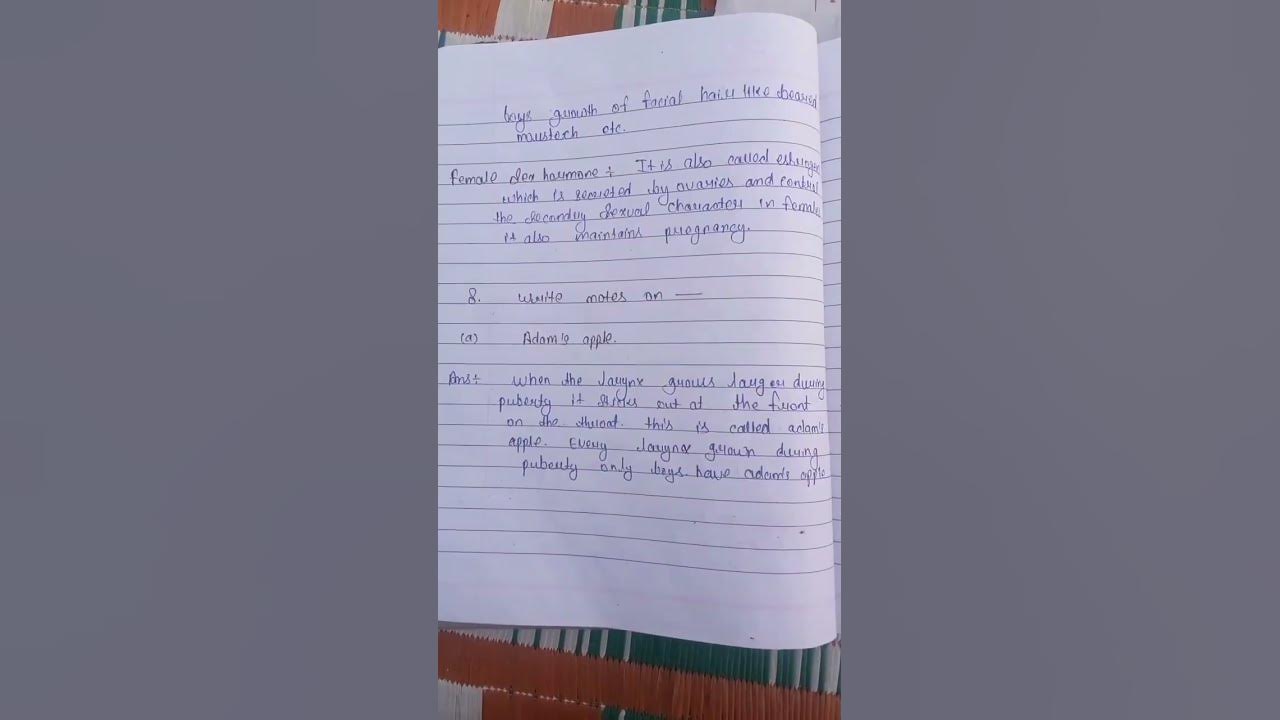 boys growth of facial hair like beared
moustech etc.
female sex harmone ÷ It is also called estroge
which is secreted by ovaries and control
the secondry sexual characters in females
it also maintains pregnancy.
8. write notes on —
(a) Adam's apple.
Ans÷ when the larynx grows larger during
puberty it sticks out at the front
on the throat. this is called adam's
apple. Every larynx grown during
puberty only boys have adam's apple